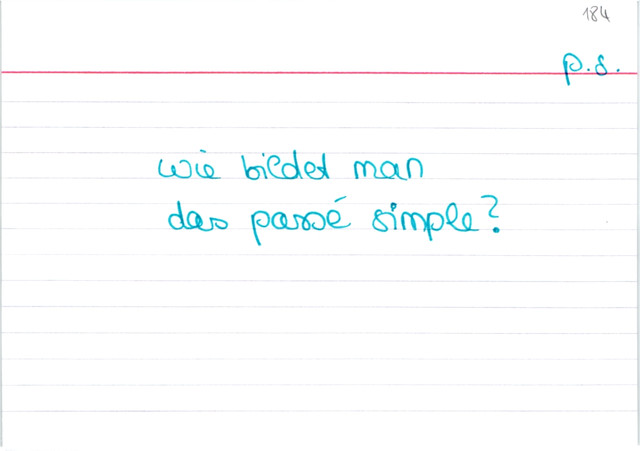 184
p.s.
wie bildet man
das passé simple?